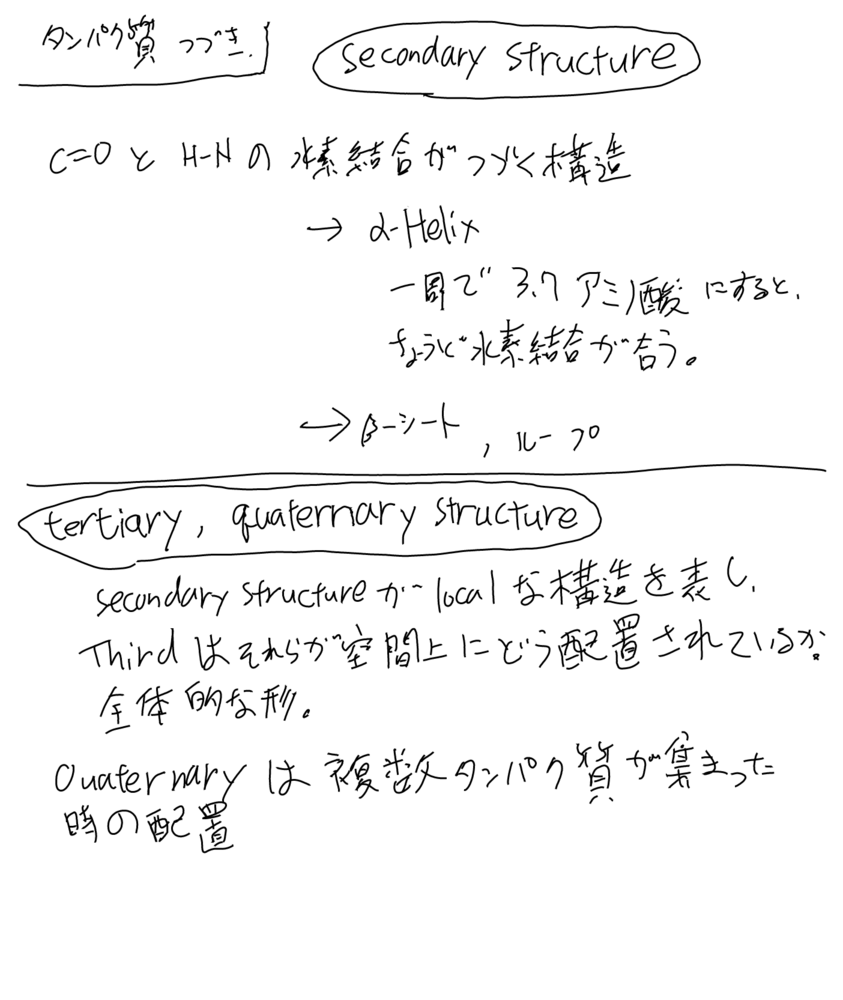 タンパク質 つづき.
secondary structure
C=O と H-N の 水素結合がつづく構造
→ α-Helix
一周で 3.7 アミノ酸 にすると、
ちょうど水素結合が合う。
→ β-シート , ループ
tertiary, quaternary structure
secondary structure が local な構造を表し、
Third はそれらが空間上にどう配置されているか.
全体的な形。
Quaternary は 複数タンパク質が集まった
時の配置